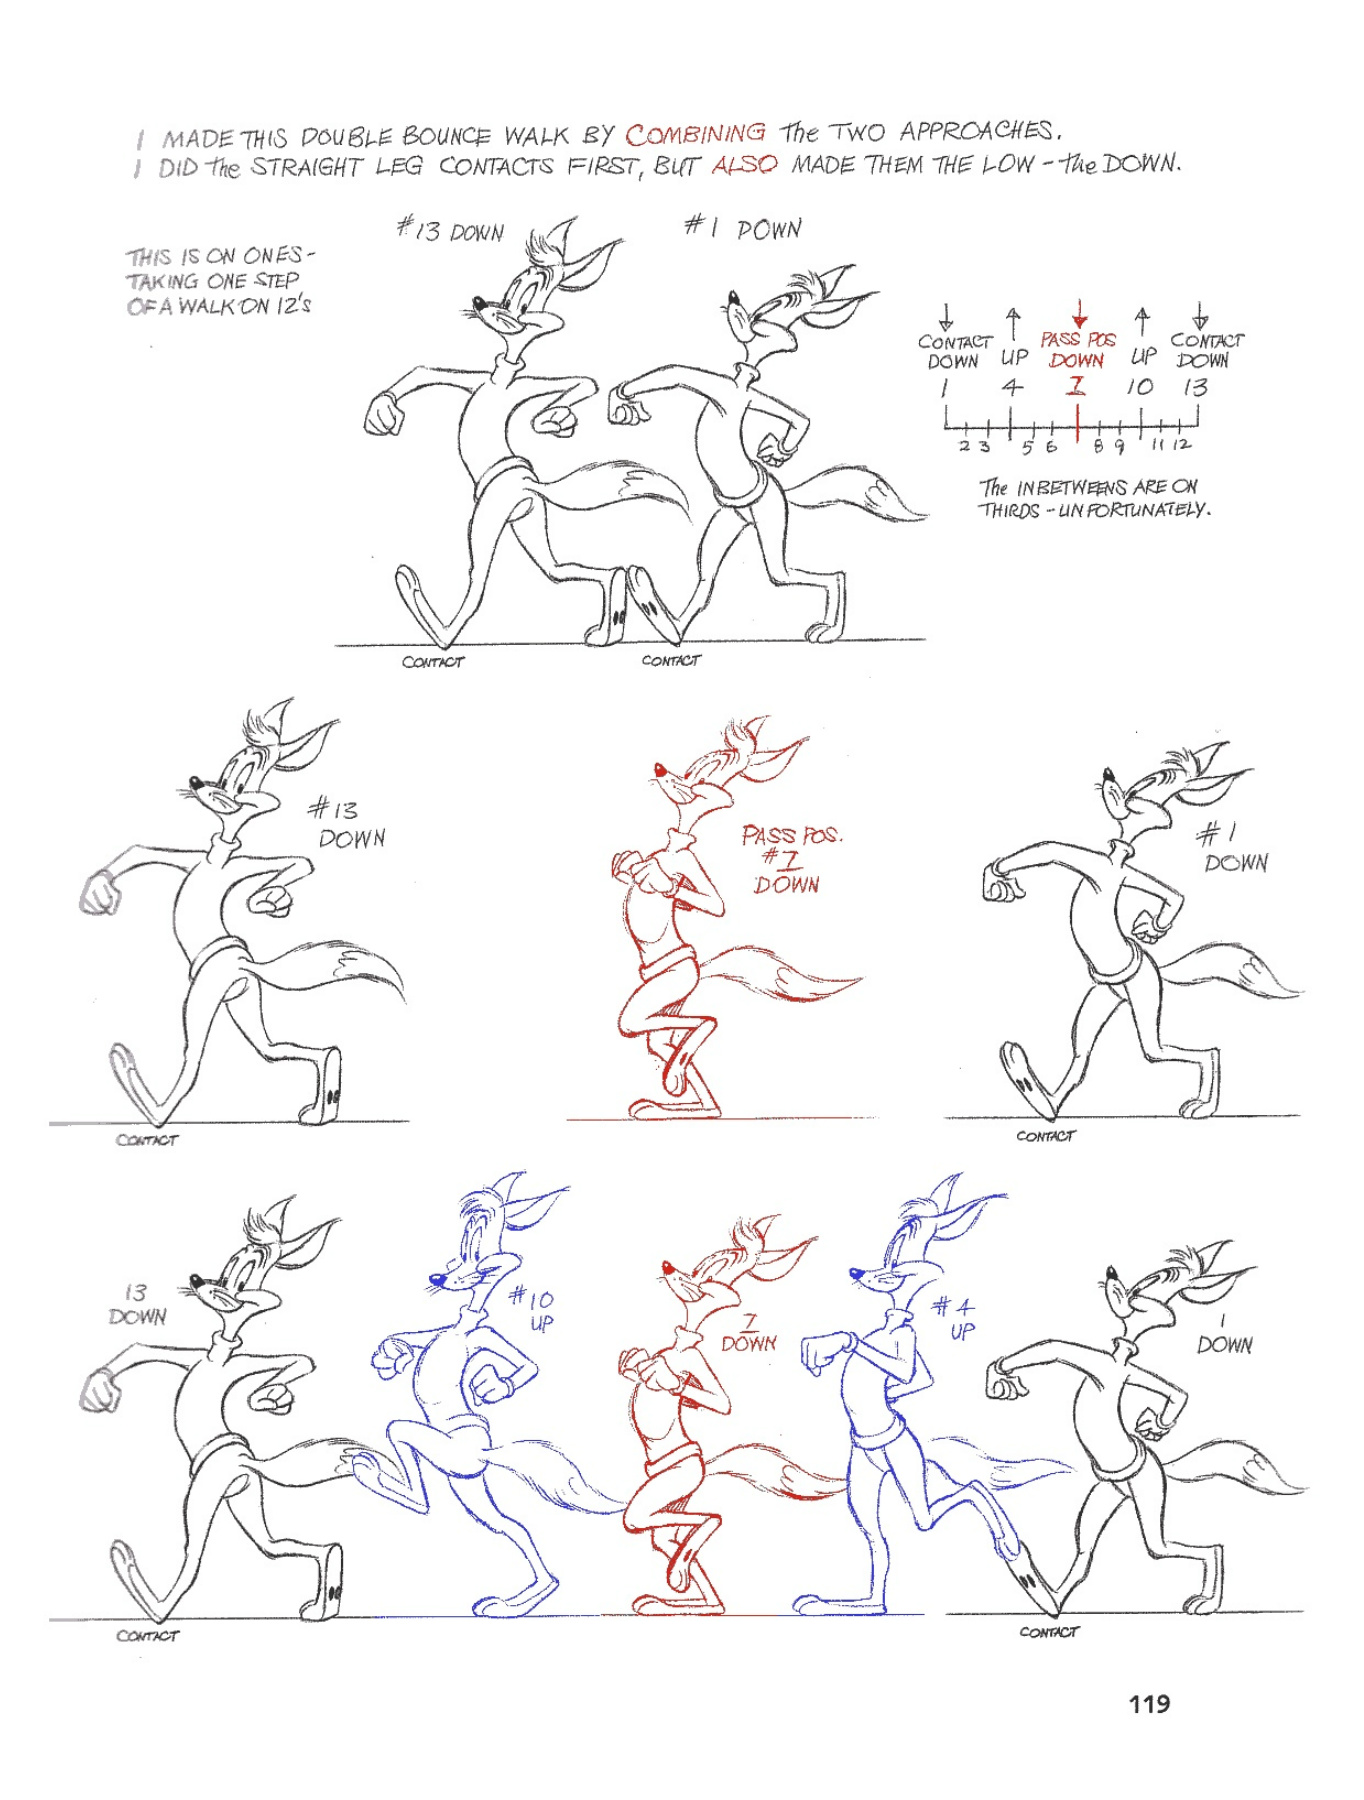 I MADE THIS DOUBLE BOUNCE WALK BY COMBINING The TWO APPROACHES.
I DID The STRAIGHT LEG CONTACTS FIRST, BUT ALSO MADE THEM THE LOW – The DOWN.
THIS IS ON ONES –
TAKING ONE STEP
OF A WALK ON 12'S
#13 DOWN
#1 DOWN
CONTACT DOWN
UP
PASS POS DOWN
UP
CONTACT DOWN
1 4 7 10 13
2 3 5 6 8 9 11 12
The INBETWEENS ARE ON
THIRDS – UNFORTUNATELY.
CONTACT
CONTACT
#13
DOWN
PASS POS.
#7
DOWN
#1
DOWN
CONTACT
CONTACT
13
DOWN
#10
UP
7
DOWN
#4
UP
1
DOWN
CONTACT
CONTACT
119